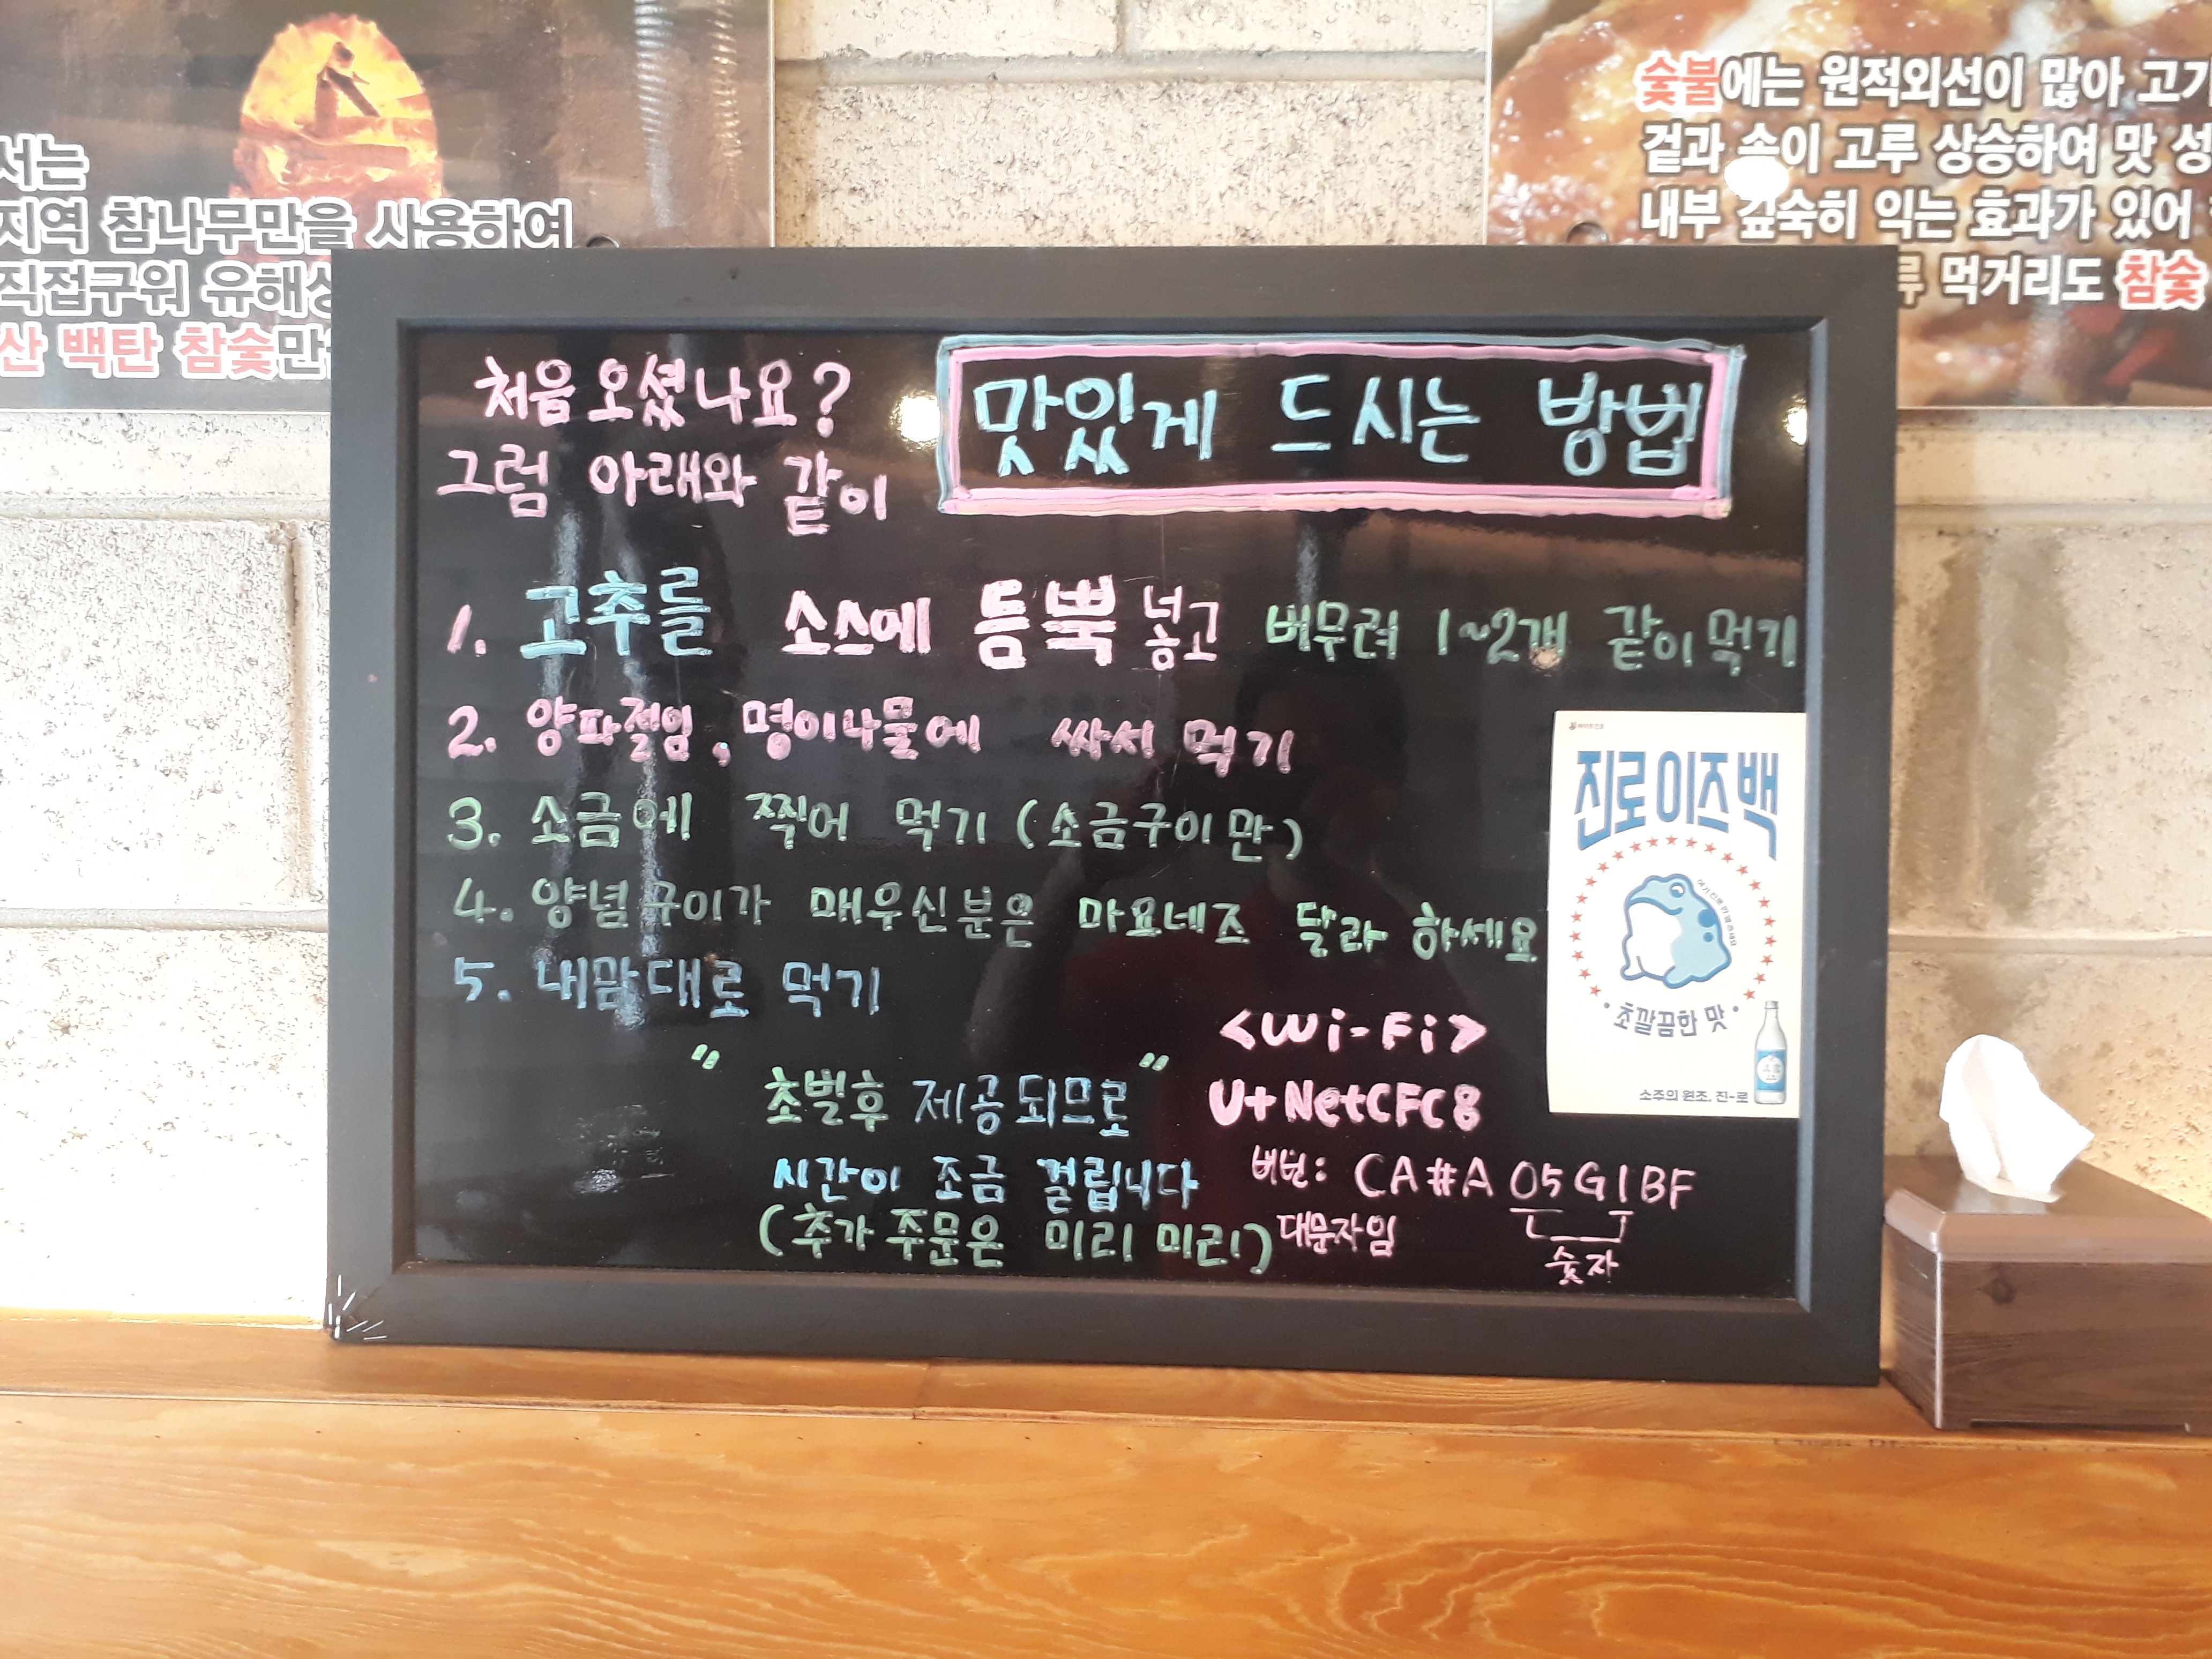 서는
지역 참나무만을 사용하여
직접구워 유해성
산 백탄 참숯만
숯불에는 원적외선이 많아 고기
겉과 속이 고루 상승하여 맛 성
내부 깊숙히 익는 효과가 있어
류 먹거리도 참숯
처음 오셨나요?
그럼 아래와 같이
맛있게 드시는 방법
1. 고추를 소스에 듬뿍 넣고 버무려 1~2개 같이 먹기
2. 양파절임, 명이나물에 싸서 먹기
3. 소금에 찍어 먹기 (소금구이만)
4. 양념구이가 매우신분은 마요네즈 달라 하세요
5. 내맘대로 먹기
" 초벌후 제공되므로 "
시간이 조금 걸립니다
(추가 주문은 미리 미리!)
<Wi-Fi>
U+NetCFC8
비번: CA#A05G1BF
대문자임
숫자
진로이즈백
·초깔끔한 맛·
소주의 원조, 진-로